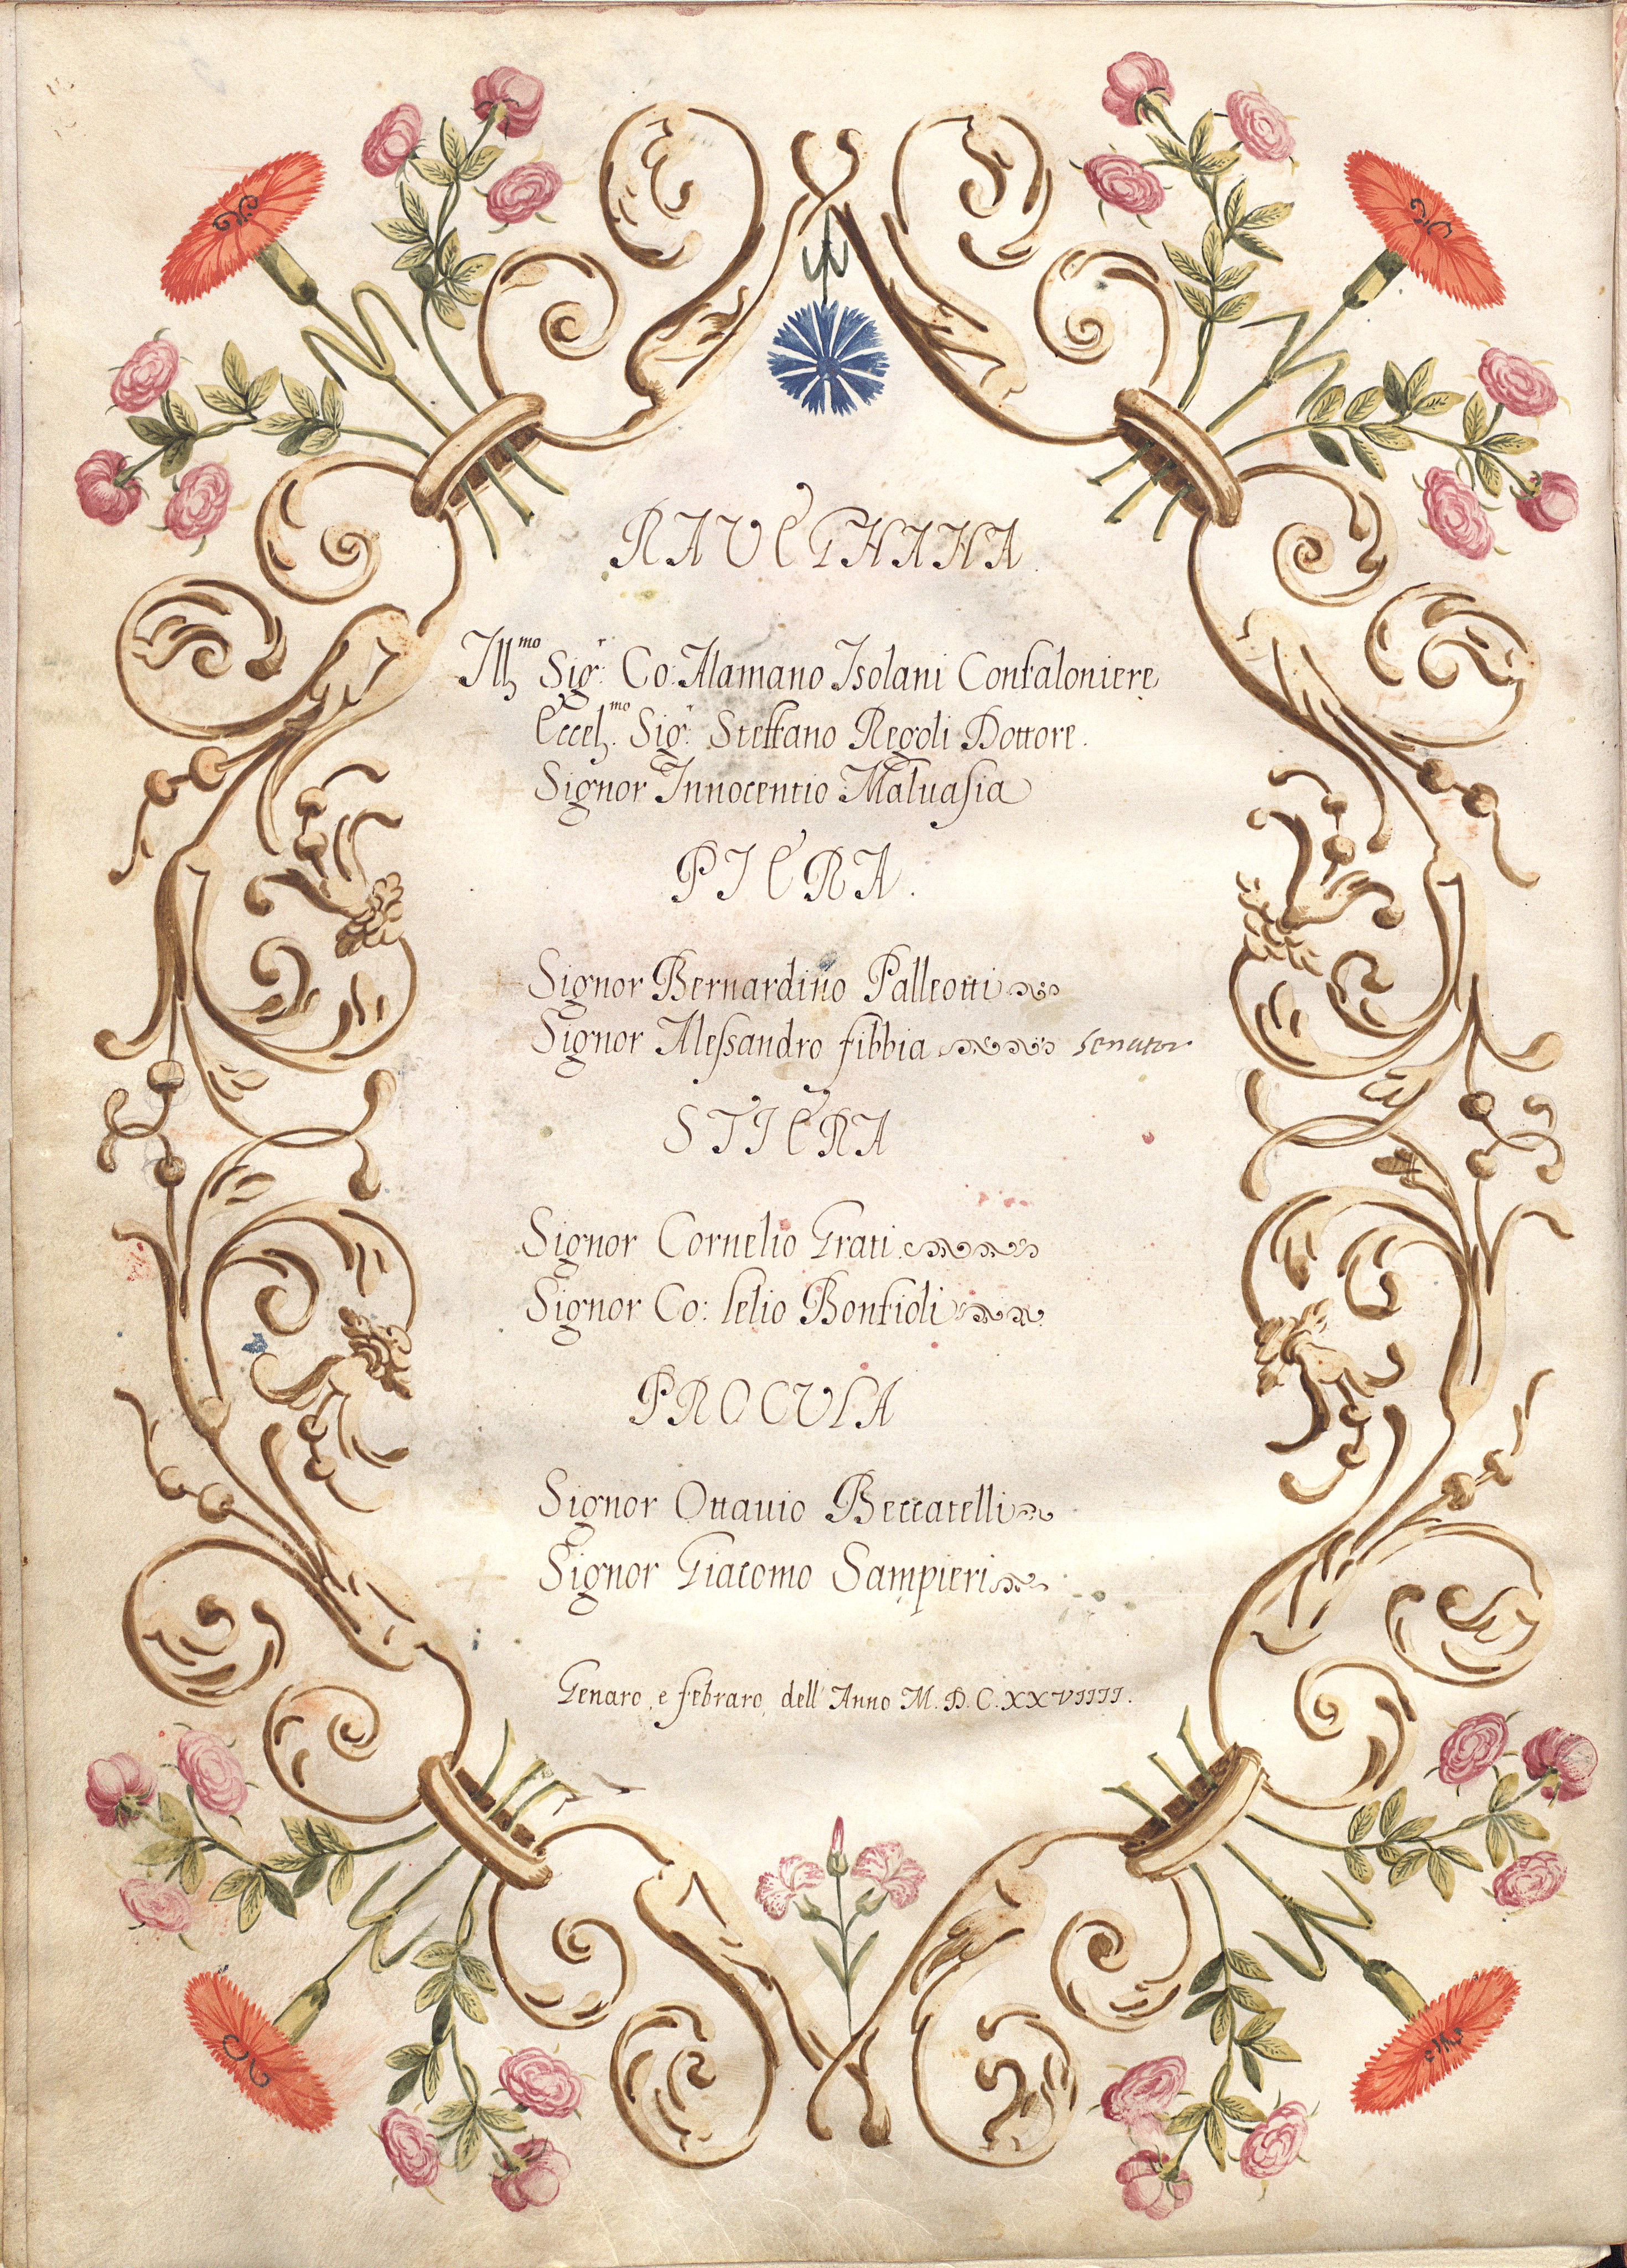 RAVEGNANA.
Ill.mo Sig.r Co: Alamano Isolani Confaloniere
Eccell.mo Sig.r Steffano Regoli Dottore.
Signor Innocentio Maluasia
PIERA.
Signor Bernardino Palleotti
Signor Alessandro fibbia senator
STIERA
Signor Cornelio Grati
Signor Co: lelio Bonfioli
PROCULA
Signor Ottauio Beccatelli
Signor Giacomo Sampieri
Genaro, e febraro, dell' Anno M.D.C.XXVIIII.